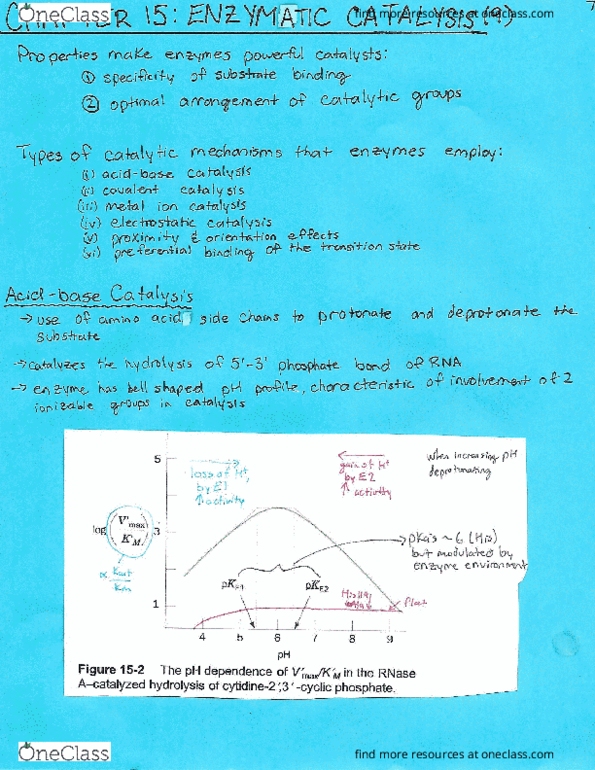 OneClass
find more resources at oneclass.com
CHAPTER 15: ENZYMATIC CATALYSIS (9)
Properties make enzymes powerful catalysts:
① specificity of substrate binding
② optimal arrangement of catalytic groups
Types of catalytic mechanisms that enzymes employ:
(i) acid-base catalysis
(ii) covalent catalysis
(iii) metal ion catalysis
(iv) electrostatic catalysis
(v) proximity & orientation effects
(vi) preferential binding of the transition state
Acid-base Catalysis
→ use of amino acid side chains to protonate and deprotonate the
substrate
→ catalyzes the hydrolysis of 5'-3' phosphate bond of RNA
→ enzyme has bell shaped pH profile, characteristic of involvement of 2
ionizable groups in catalysis
5
loss of H⁺
by E1
↑ activity
gain of H⁺
by E2
↑ activity
when increasing pH
deprotonating
log (V'max / K'M)
3
∝ Kcat / Km
pKa's ~ 6 (His)
but modulated by
enzyme environment
pKE1
pKE2
His 119
1
4 5 6 7 8 9
pH
Figure 15-2 The pH dependence of V'max/K'M in the RNase
A–catalyzed hydrolysis of cytidine-2',3'-cyclic phosphate.
OneClass
find more resources at oneclass.com